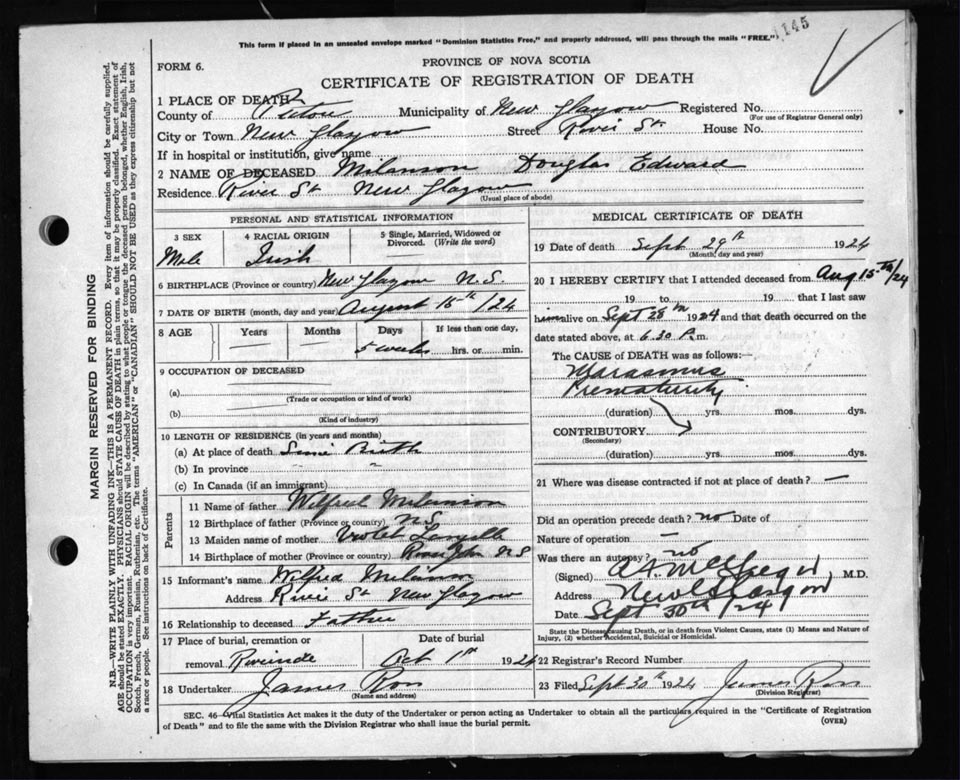 This form if placed in an unsealed envelope marked "Dominion Statistics Free," and properly addressed, will pass through the mails "FREE." 1145
FORM 6.
PROVINCE OF NOVA SCOTIA
CERTIFICATE OF REGISTRATION OF DEATH
1 PLACE OF DEATH—
County of Pictou Municipality of New Glasgow Registered No.
(For use of Registrar General only)
City or Town New Glasgow Street River St. House No.
If in hospital or institution, give name
2 NAME OF DECEASED Milanson Douglas Edward
Residence River St New Glasgow
(Usual place of abode)
PERSONAL AND STATISTICAL INFORMATION
3 SEX
Male
4 RACIAL ORIGIN
Irish
5 Single, Married, Widowed or Divorced. (Write the word)
6 BIRTHPLACE (Province or country) New Glasgow N.S.
7 DATE OF BIRTH (month, day and year) August 15th /24
8 AGE Years Months Days If less than one day,
5 weeks hrs. or min.
9 OCCUPATION OF DECEASED
(a)
(Trade or occupation or kind of work)
(b)
(Kind of industry)
10 LENGTH OF RESIDENCE (in years and months)
(a) At place of death Since Birth
(b) In province " "
(c) In Canada (if an immigrant)
Parents
11 Name of father Wilfred Milanson
12 Birthplace of father (Province or country) N.S.
13 Maiden name of mother Violet
14 Birthplace of mother (Province or country) N S
15 Informant's name Wilfred Milanson
Address River St New Glasgow
16 Relationship to deceased Father
17 Place of burial, cremation or removal Riverside
Date of burial
Oct 1st 1924
18 Undertaker James Ross
(Name and address)
MEDICAL CERTIFICATE OF DEATH
19 Date of death Sept 29th 1924
(Month, day and year)
20 I HEREBY CERTIFY that I attended deceased from Aug 15th/24
19 to 19 that I last saw
him alive on Sept 28th 1924 and that death occurred on
date stated above, at 6.30 P.m.
The CAUSE OF DEATH was as follows:—
Marasmus
Prematurity
(duration) yrs. mos. dys.
CONTRIBUTORY
(Secondary)
(duration) yrs. mos. dys.
21 Where was disease contracted if not at place of death? —
Did an operation precede death? no Date of
Nature of operation —
Was there an autopsy? no
(Signed) M.D.
Address New Glasgow
Date Sept 30th /24
State the Disease causing Death, or in death from Violent Causes, state (1) Means and Nature of
Injury, (2) whether Accidental, Suicidal or Homicidal.
22 Registrar's Record Number
23 Filed Sept 30th 1924 James Ross
(Division Registrar)
SEC. 46—Vital Statistics Act makes it the duty of the Undertaker or person acting as Undertaker to obtain all the particulars required in the "Certificate of Registration
of Death" and to file the same with the Division Registrar who shall issue the burial permit.
(OVER)
MARGIN RESERVED FOR BINDING
N.B.—WRITE PLAINLY WITH UNFADING INK—THIS IS A PERMANENT RECORD. Every item of information should be carefully supplied.
AGE should be stated EXACTLY. PHYSICIANS should STATE CAUSE OF DEATH in plain terms, so that it may be properly classified. Exact statement of
OCCUPATION is very important. RACIAL ORIGIN will be described by stating to what people or tongue the deceased person belonged, whether English, Irish,
Scotch, French, German, Russian, Ruthenian, etc. The terms "AMERICAN" or "CANADIAN" SHOULD NOT BE USED as they express citizenship but not
a race or people. See instructions on back of Certificate.